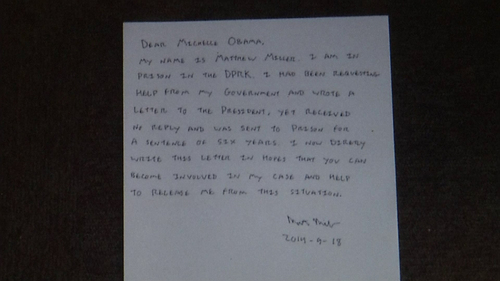 DEAR MICHELLE OBAMA,
MY NAME IS MATTHEW MILLER. I AM IN
PRISON IN THE DPRK. I HAD BEEN REQUESTING
HELP FROM MY GOVERNMENT AND WROTE A
LETTER TO THE PRESIDENT, YET RECEIVED
NO REPLY AND WAS SENT TO PRISON FOR
A SENTENCE OF SIX YEARS. I NOW DIRELY
WRITE THIS LETTER IN HOPES THAT YOU CAN
BECOME INVOLVED IN MY CASE AND HELP
TO RELEASE ME FROM THIS SITUATION.
2014-9-18